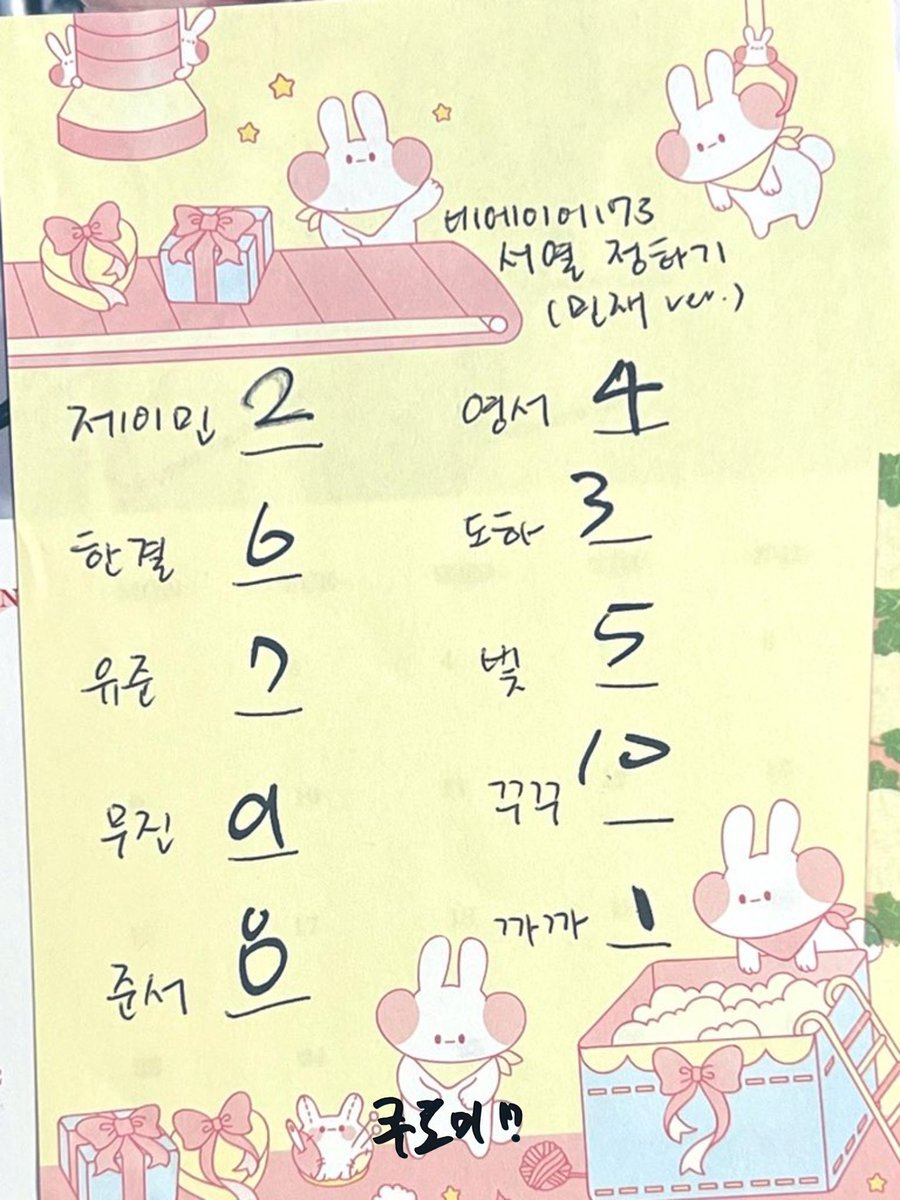 비에이이어173
서열 정하기
(민재 ver.)
제이민 2
영서 4
한결 6
도하 3
유준 7
빛 5
무진 9
꾸꾸 10
준서 8
까까 1